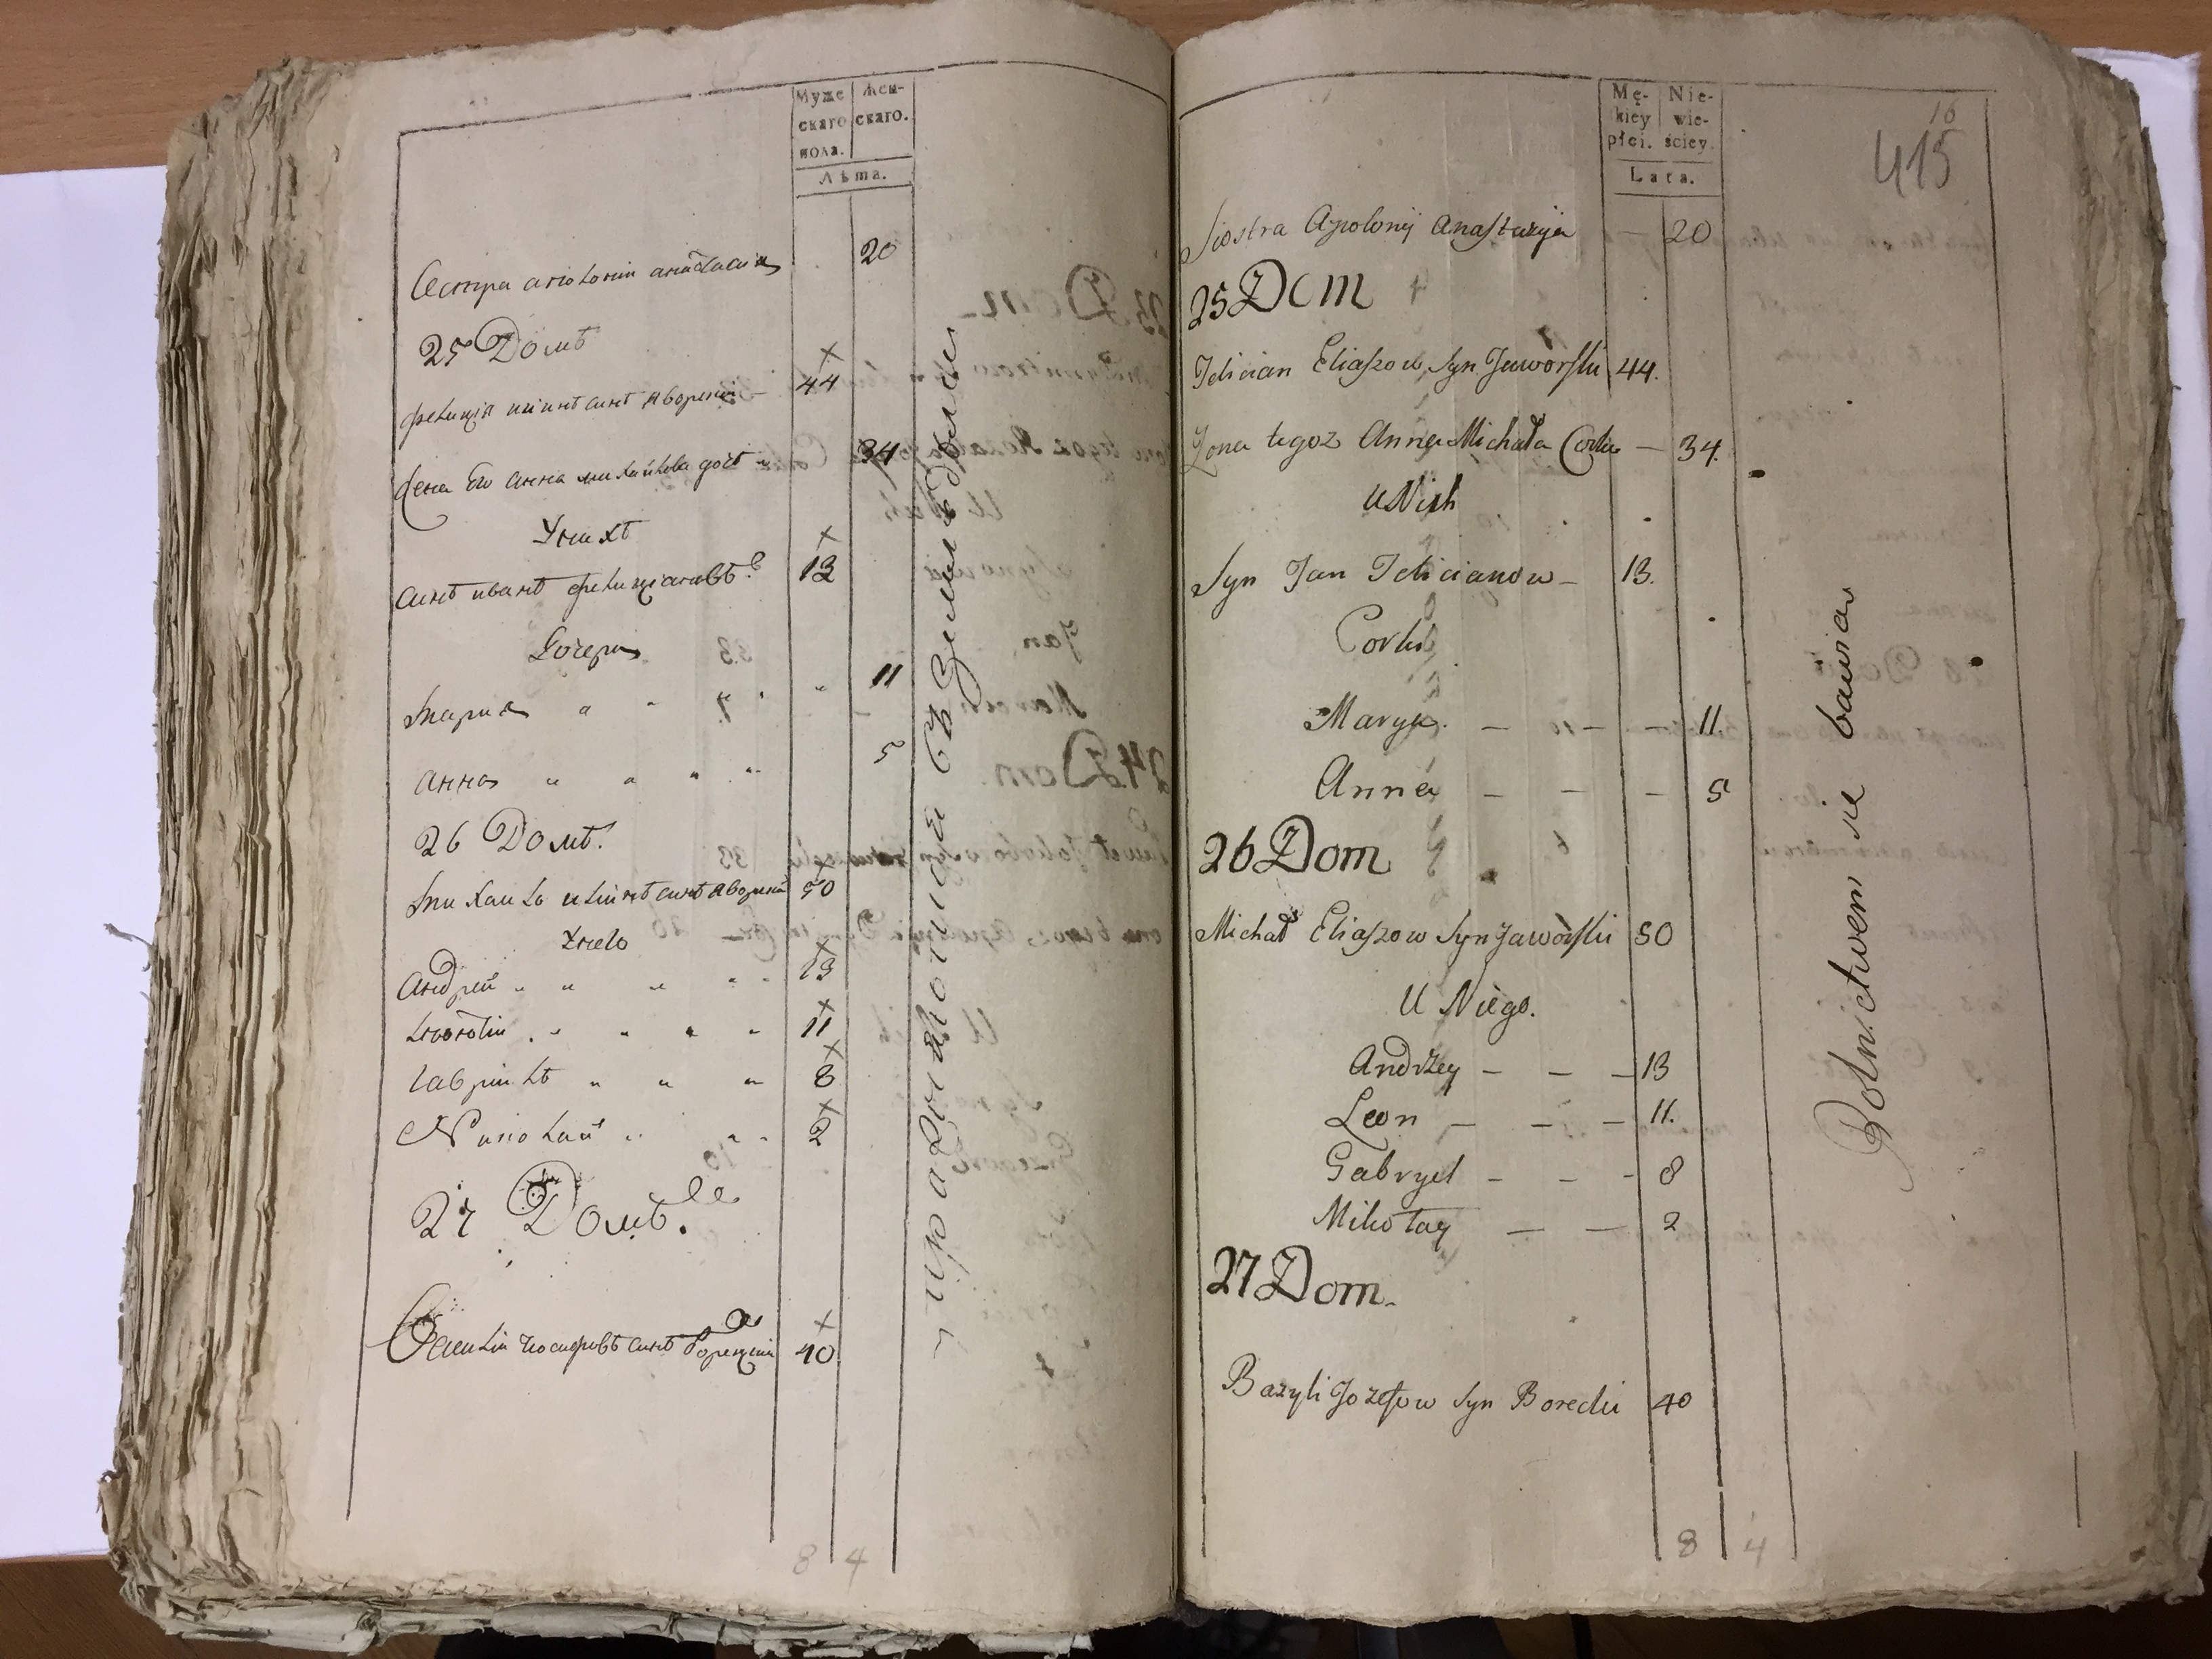 Муже
скаго
пола.
Жен-
скаго.
Лѣта.
Сестра аполонии анастасия 20
25 Домъ
фелиціянъ синъ Яворский 44
Жена Его анна михайлова дочь 34
У нихъ
синъ иванъ фелиціановъ 13
Дочери
Мария " " " 11
анна " " " " 5
26 Домъ.
Михайло синъ Яворский 50
У него
андрей " " " " 13
" " " " 11
гавриилъ " " " 8
Николай " " " 2
27 Домъ.
Василий иосифовъ синъ Борецкий 40
8 4
Mę-
kiey
płci.
Nie-
wie-
ściey.
Lata.
10
415
Siostra Apolonij Anastazyja — 20
25 Dom
Felician Eliaszow Syn Jaworski 44.
Zona tegoż Anna Michała Corka — 34.
U Nich
Syn Jan Felicianow — 13.
Corki
Marya. — — — 11.
Anna — — — 5
26 Dom
Michał Eliaszow Syn Jaworski 50
U Niego.
Andrzey — — — 13
Leon — — — 11.
Gabryel — — - 8
Mikołay — — 2
27 Dom.
Bazyli Jozefow Syn Borecki 40
Rolnictwem się bawią
8 4